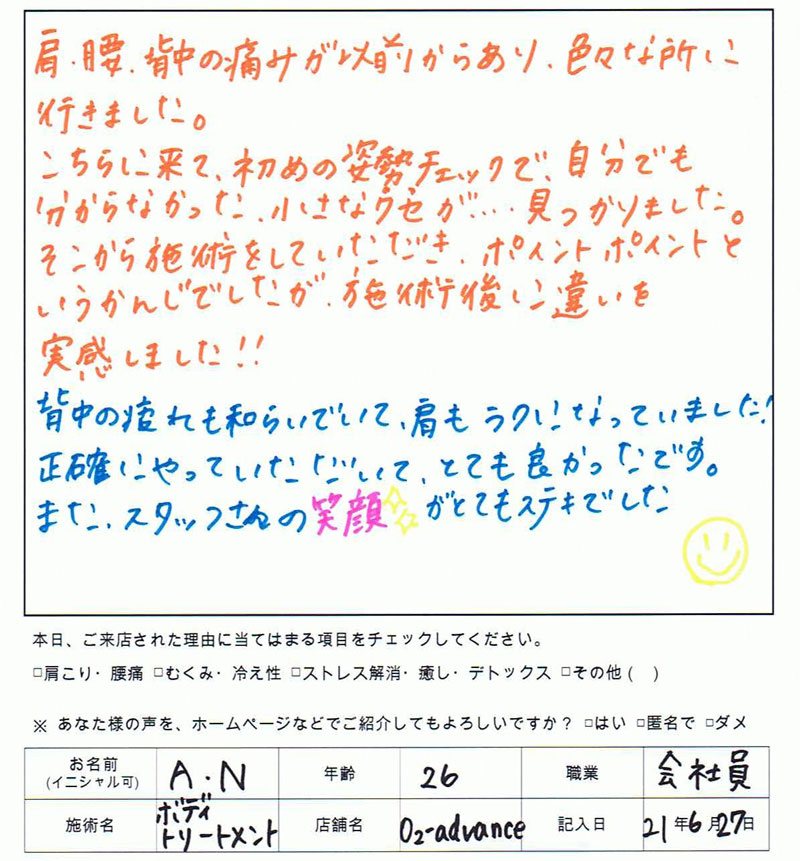 肩・腰、背中の痛みが以前からあり、色々な所に
行きました。
こちらに来て、初めの姿勢チェックで、自分でも
分からなかった、小さなクセが…、見つかりました。
そこから施術をしていただき、ポイントポイントと
いうかんじでしたが、施術後に違いを
実感しました!!
背中の疲れも和らいでいて、肩もラクになっていました!
正確にやっていただいて、とても良かったです。
また、スタッフさんの笑顔がとてもステキでした
本日、ご来店された理由に当てはまる項目をチェックしてください。
□肩こり・腰痛 □むくみ・冷え性 □ストレス解消・癒し・デトックス □その他 ( )
※ あなた様の声を、ホームページなどでご紹介してもよろしいですか？ □はい □匿名で □ダメ
お名前 (イニシャル可) A.N 年齢 26 職業 会社員
施術名 ボディトリートメント 店舗名 O2-advance 記入日 21年6月27日